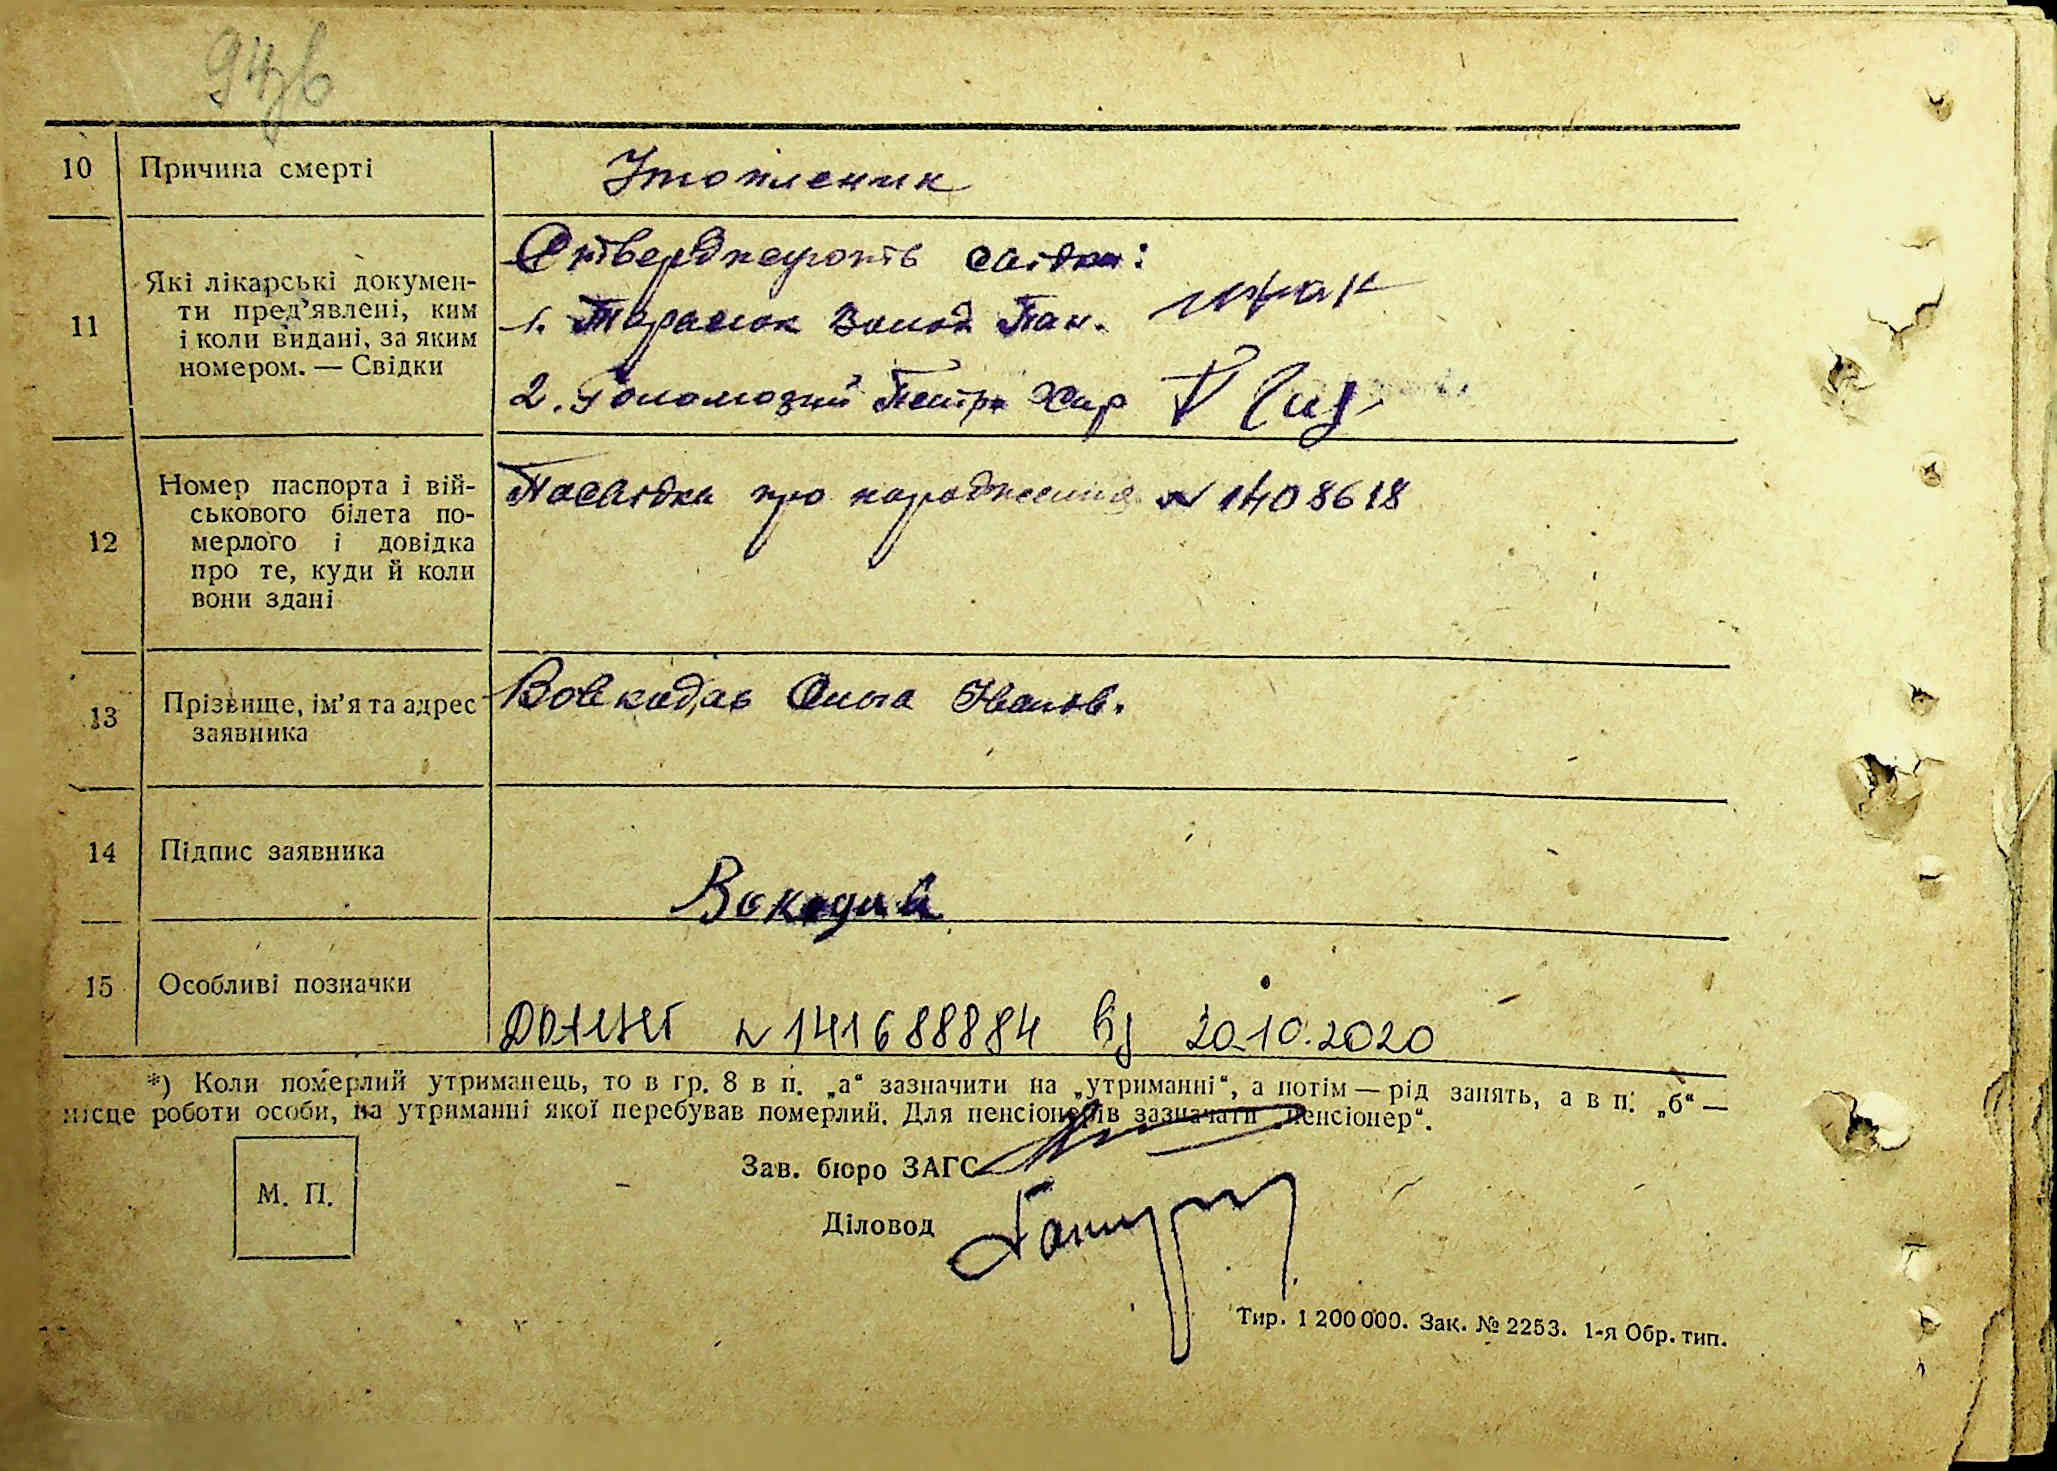 10 Причина смерті Утопленик
11 Які лікарські докумен-
ти пред'явлені, ким
і коли видані, за яким
номером. — Свідки
Стверджують свідки:
1. Тарасюк Волод Пан.
2. Голомозий Петро Хар
12 Номер паспорта і вій-
ськового білета по-
мерлого і довідка
про те, куди й коли
вони здані
Посвідка про народження № 1408618
13 Прізвище, ім'я та адрес
заявника
Вовкодав Ольга Іванов.
14 Підпис заявника
Вокодав
15 Особливі позначки
№ 141688884 від 20.10.2020
*) Коли померлий утриманець, то в гр. 8 в п. „а“ зазначити на „утриманні“, а потім — рід занять, а в п. „б“ —
місце роботи особи, на утриманні якої перебував померлий. Для пенсіонерів зазначати „пенсіонер“.
Зав. бюро ЗАГС
М. П.
Діловод
Тир. 1 200 000. Зак. № 2253. 1-я Обр. тип.